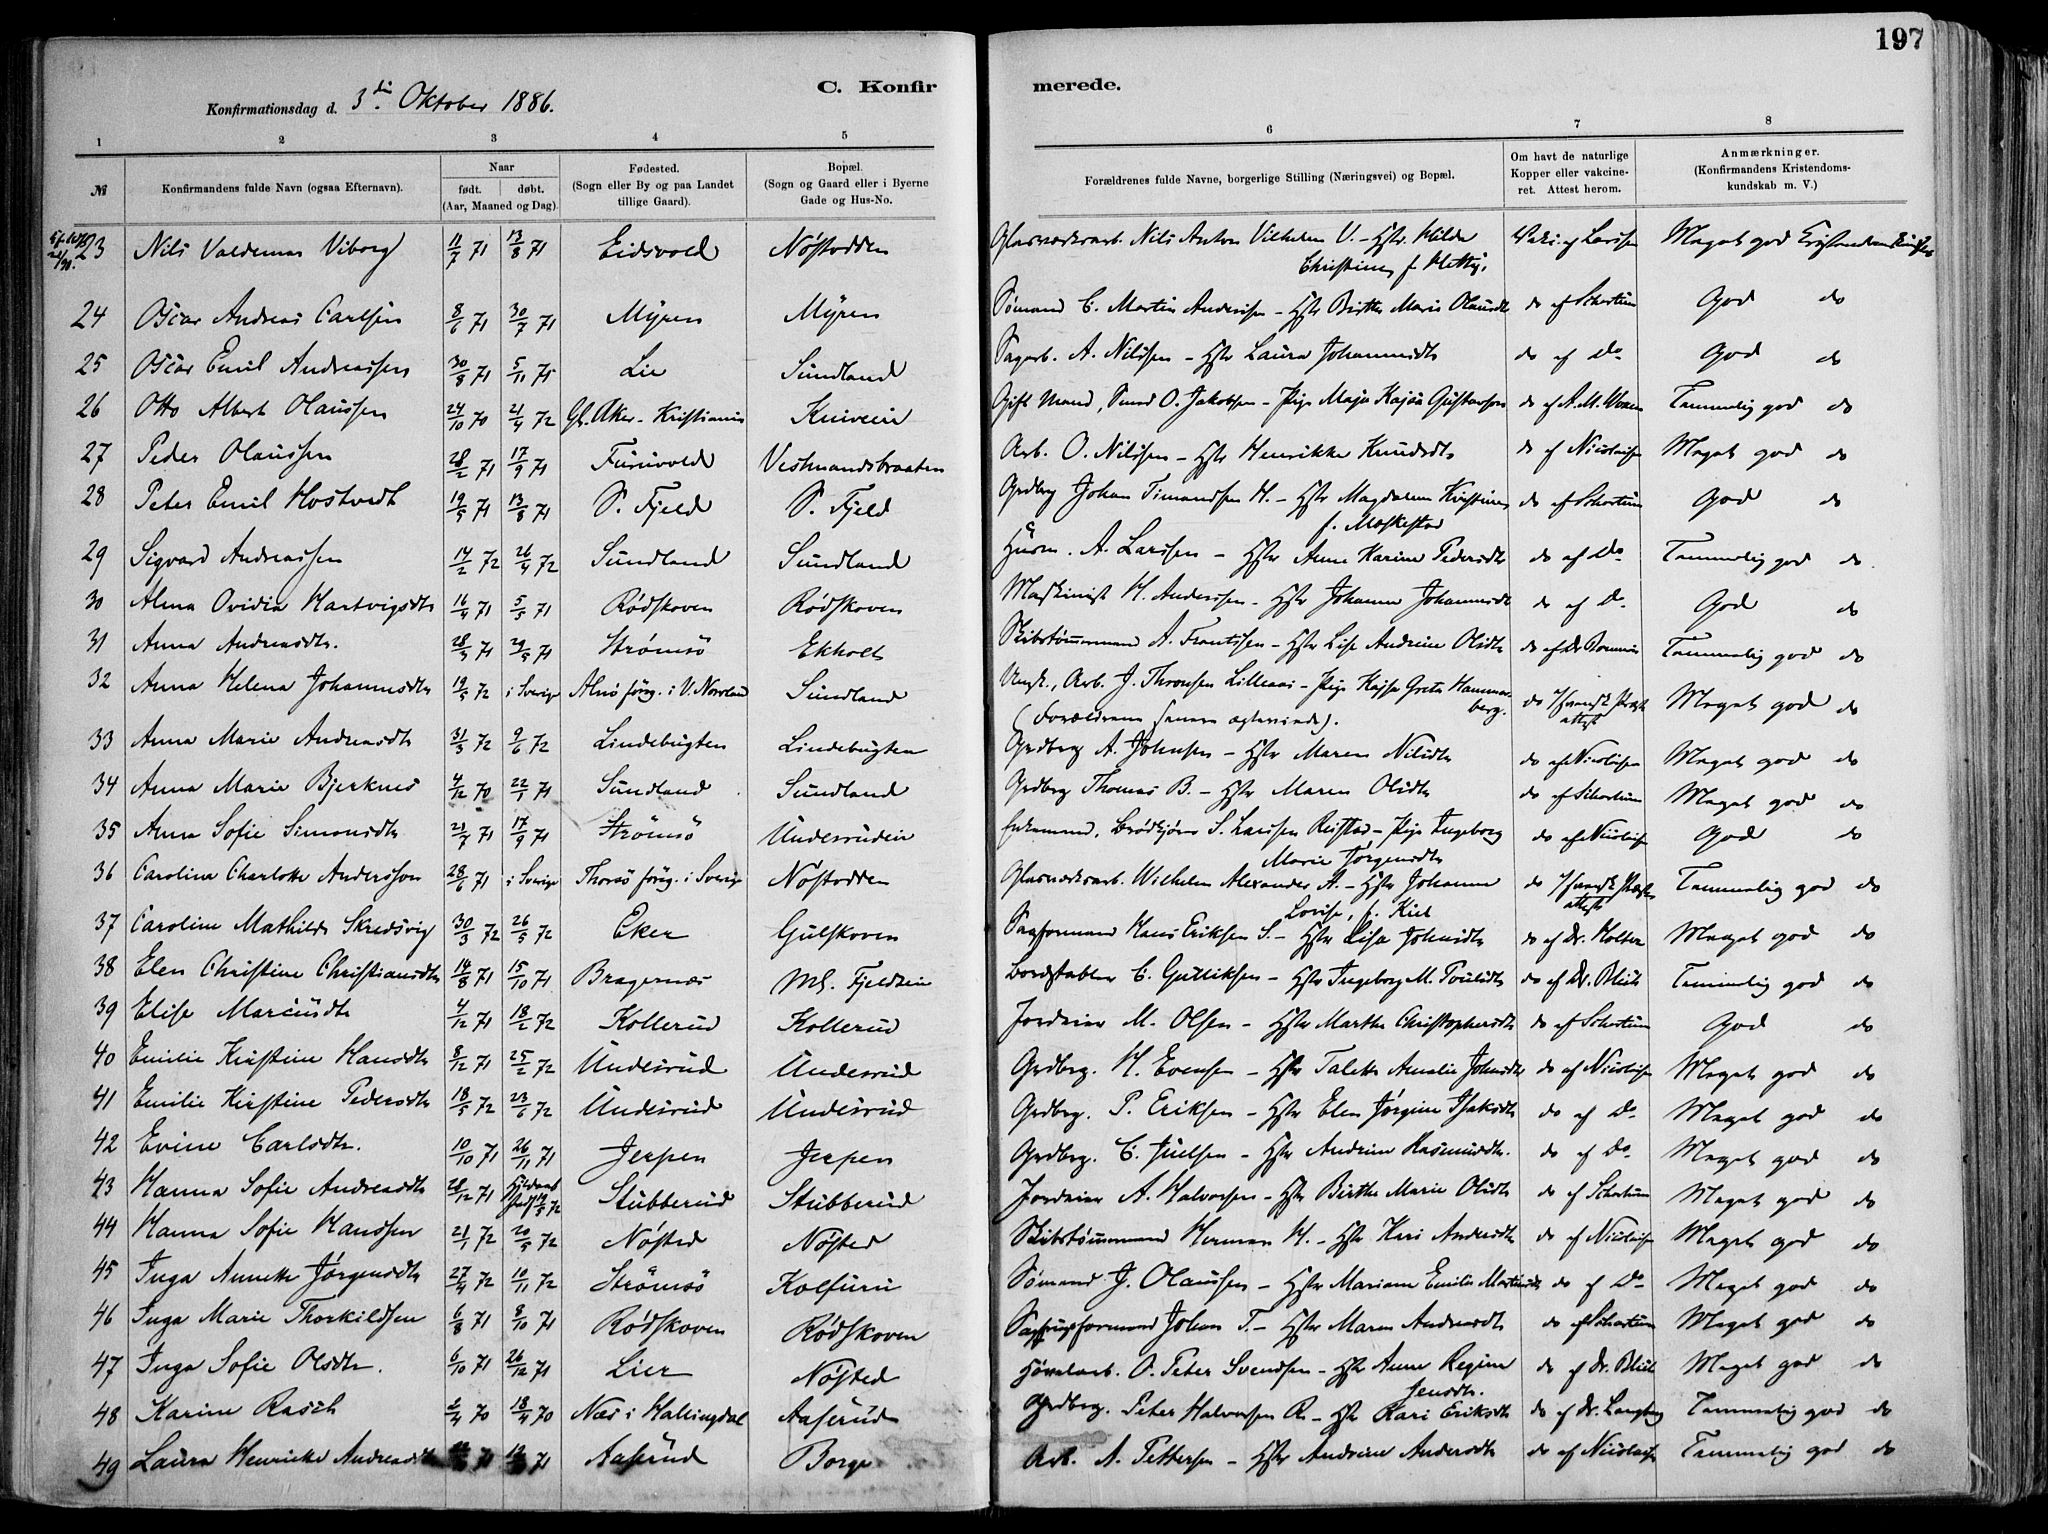 197
Konfirmationsdag d. 3die Oktober 1886.
C. Konfir
merede.
1 2 3 4 5 6 7 8
№ Konfirmandens fulde Navn (ogsaa Efternavn). Naar født. døbt. (Aar, Maaned og Dag). Fødested. (Sogn eller By og paa Landet tillige Gaard). Bopæl. (Sogn og Gaard eller i Byerne Gade og Hus-No. Forældrenes fulde Navne, borgerlige Stilling (Næringsvei) og Bopæl. Om havt de naturlige Kopper eller vakcineret. Attest herom. Anmærkninger. (Konfirmandens Kristendomskundskab m. V.)
23 Nils Valdemar Viborg 11/7 71 13/8 71 Eidsvold Nøstodden Glasværksarb. Nils Anton Vilhelm V. - Hstr. Hilda Meget god
Christine f. Mettig.
24 Oscar Andreas Carlsen 8/6 71 30/7 71 Myren Myren Sømand C. Martin Andersen - Hstr Birthe Marie Olausdtr do af Schortum God do
25 Oscar Emil Andreassen 30/8 71 5/11 71 Lie Sundland Sagarb. A. Nilssen - Hstr Laura Johannesdtr do af do God do
26 Otto Albert Olaussen 24/10 70 21/4 72 Gl. Aker - Kristiania Knivein Gift Mand, O. Jakobsen - Pige Maja Kajsa Gustavson do af Temmelig god do
27 Peder Olaussen 28/2 71 17/9 71 Furuvold Vestmandsbraaten Arb. O. Nilssen - Hstr Henrikke Knudsdtr do af Nicolaisen Meget god do
28 Peter Emil Hostvedt 19/5 71 13/8 71 S. Fjeld S. Fjeld Grdbrg Johan Simondsen H. - Hstr Magdalena Kristine do af Schortum God do
f. Moskestad
29 Sigvard Andreassen 14/2 72 26/4 72 Sundland Sundland Husm. A. Larssen - Hstr Anne Karine Pedersdtr do af Do Temmelig god do
30 Alma Ovidia Hartvigsdtr 16/4 71 5/5 71 Rødskoven Rødskoven Maskinist H. Anderssen - Hstr Johanne Johannesdtr do af Do God do
31 Anna Andreasdtr. 28/3 71 29/5 71 Strømsö Ekholt Skibstømmermand A. Frantssen - Hstr Lise Andrine Olsdtr do af Dr Temmelig god do
32 Anna Helena Johannesdtr 19/5 72 i Sverige Alnö förg. i V. Norrland Sundland Ungk., Arb. J. Thronsen Lilleaas - Pige Kajsa Greta Hammar do svensk Præste Meget god do
berg. attest
(Forældrene senere ægteviede).
33 Anna Marie Andreasdtr 31/3 72 9/6 72 Lindebugten Lindebugten Grdbrg A. Johnsen - Hstr Maren Nilsdtr do af Nicolaisen Meget god do
34 Anna Marie Bjerknes 4/12 70 22/1 71 Sundland Sundland Grdbrg Thomas B. - Hstr Maren Olsdtr do af Schortum Meget god do
35 Anna Sofie Simonsdtr 21/7 71 17/9 71 Strømsö Underuden Enkemand, Brødkjører S. Larssen Reistad - Pige Ingeborg do af Nicolaisen God do
Marie Jørgensdtr
36 Carolina Charlotte Andersson 28/6 71 i Sverige Thorsö förg. i Sverige Nøstodden Glasværksarb. Wilhelm Alexander A. - Hstr Johanna do svensk Præste Temmelig god do
Lovise, f. Kiel attest
37 Caroline Mathilde Skredsvig 30/3 72 26/5 72 Eker Gulskoven Sagformand Hans Eriksen S. - Hstr Lisa Johnsdtr do af Dr. Holter Meget god do
38 Elen Christine Christiansdtr 14/8 71 15/10 71 Bragernæs Ml. Fjeldsein Bordstabler C. Gulliksen - Hstr Ingeborg M. Poulsdtr do af Dr. Blich Temmelig god do
39 Elise Marcusdtr 4/12 71 18/2 72 Kollerud Kollerud Jordeier M. Olsen - Hstr Marthe Christophersdtr do af Schortum God do
40 Emilie Kirstine Hansdtr 8/12 71 25/2 72 Underrud Underrud Grdbrg. H. Evensen - Hstr Talette Amalie Johnsdtr do af Nicolaisen Meget god do
41 Emilie Kirstine Pedersdtr 18/5 72 23/6 72 Underrud Underrud Grdbrg. P. Eriksen - Hstr Elen Jørgine Isaksdtr do af Do Meget god do
42 Evine Carlsdtr. 10/10 71 26/11 71 Jerpen Jerpen Grdbrg. C. Juelsen - Hstr Andrine Rasmusdtr. do af Do Meget god do
43 Hanna Sofie Andreasdtr 28/12 71 Hjdøbt 19/5 72 Stubberud Stubberud Jordeier A. Halvorsen - Hstr Birthe Marie Olsdtr do af Schortum Meget god do
44 Hanna Sofie Hanssen 21/1 72 20/5 72 Nøsted Nøsted Skibstømmermand Herman H. - Hstr Kari Andersdtr do af Nicolaisen Meget god do
45 Inga Annette Jørgensdtr 27/4 72 10/11 72 Strømsö Kolfuru Sømand J. Olaussen - Hstr Mariane Emilie Martinsdtr do af Do Meget god do
46 Inga Marie Thorkildsen 6/8 71 8/10 71 Rødskoven Rødskoven Sagbrugsformand Johan T. - Hstr Maren Andreasdtr do af Schortum Meget god do
47 Inga Sofie Olsdtr. 6/10 71 26/12 71 Lier Nøsted Høvelarb. O. Peter Svendsen - Hstr Anne Regine do af Dr. Blich Meget god do
Jensdtr.
48 Karine Rasch 2/4 70 18/4 70 Næs i Hallingdal Aaserud Grdbrg. Peter Halvorsen R. - Hstr Kari Eriksdtr do af Dr. Langberg Temmelig god do
49 Laura Henrikke Andreasdtr 70 71 Aaserud Borge Arb. A. Pettersen - Hstr Andrine Andersdtr do af Nicolaisen Temmelig god do